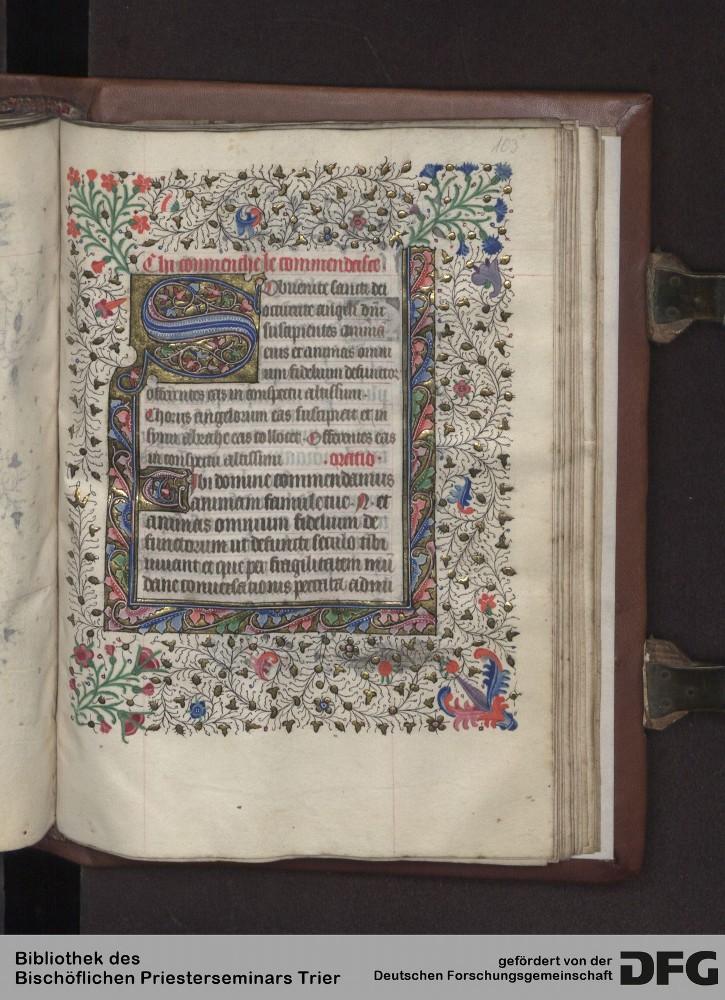 103
Chi conmenche le commendasce
Subuenite sancti dei
occurite angeli dni
suscipientes anima
eius et animas omni
um fidelium defunctor
offerentes eas in conspectu altissimi
Chorus angelorum eas suscipiat et in
sinu abrahe eas collocet. Offerentes eas
in conspectu altissimi oratio
Tibi domine commendamus
animam famule tue N. et
animas omnium fidelium de
functorum ut defuncte seculo tibi
uiuant et que per fragilitatem mun
dane conuersationis peccata admi
Bibliothek des
Bischöflichen Priesterseminars Trier
gefördert von der
Deutschen Forschungsgemeinschaft
DFG